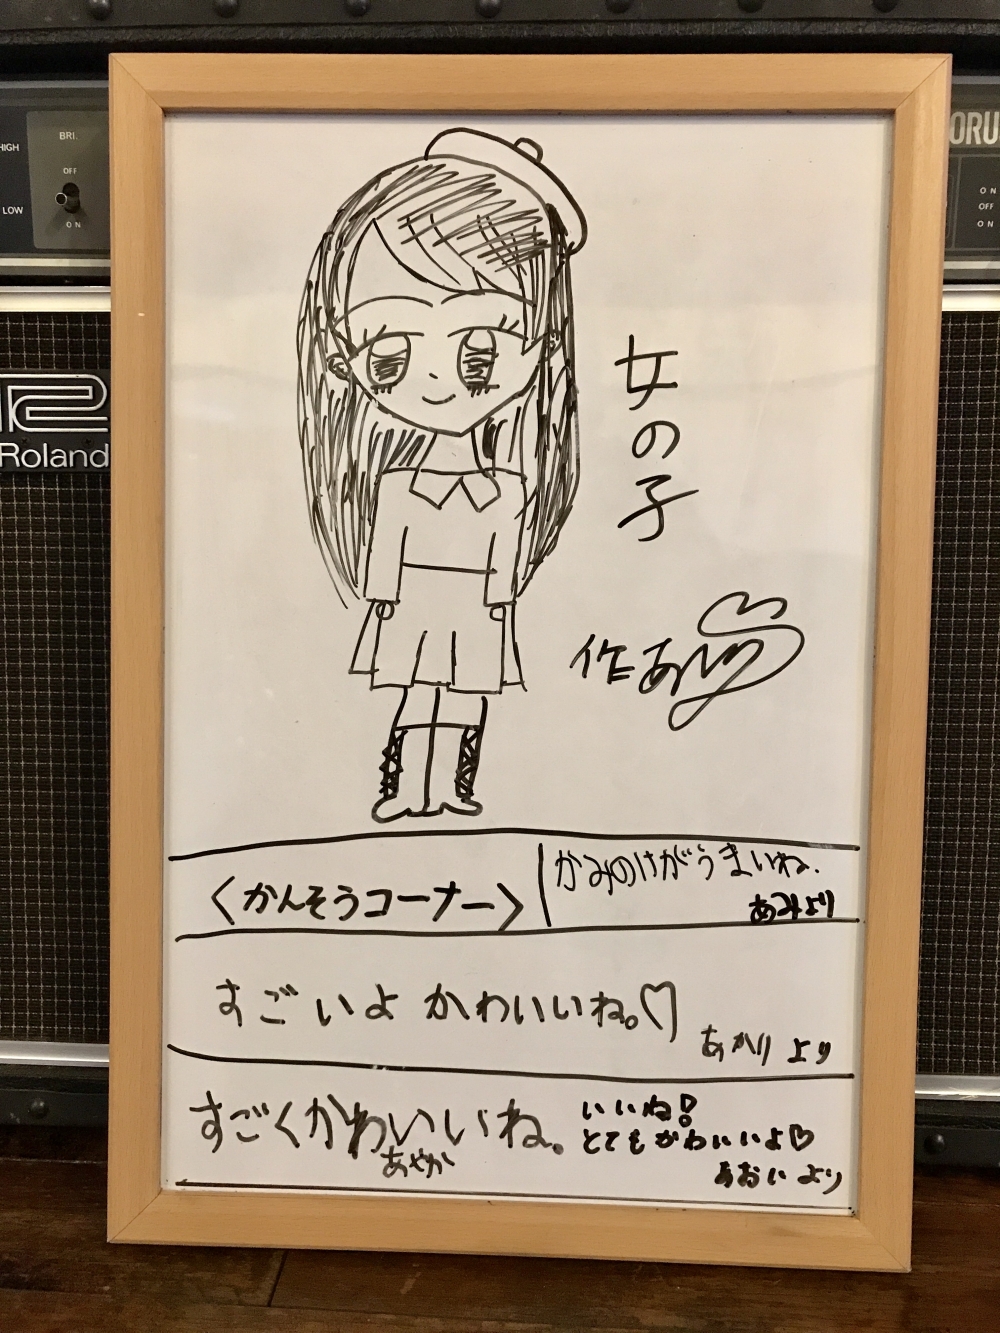 BRI.
HIGH
OFF
LOW
ON
ORU
ON
OFF
ON
Roland
女の子
作 あ
かみのけがうまいね.
あみより
〈かんそうコーナー〉
すごいよ かわいいね。♡
あかり より
すごくかわいいね。
あやか
いいね!
とてもかわいいよ♡
あおい より